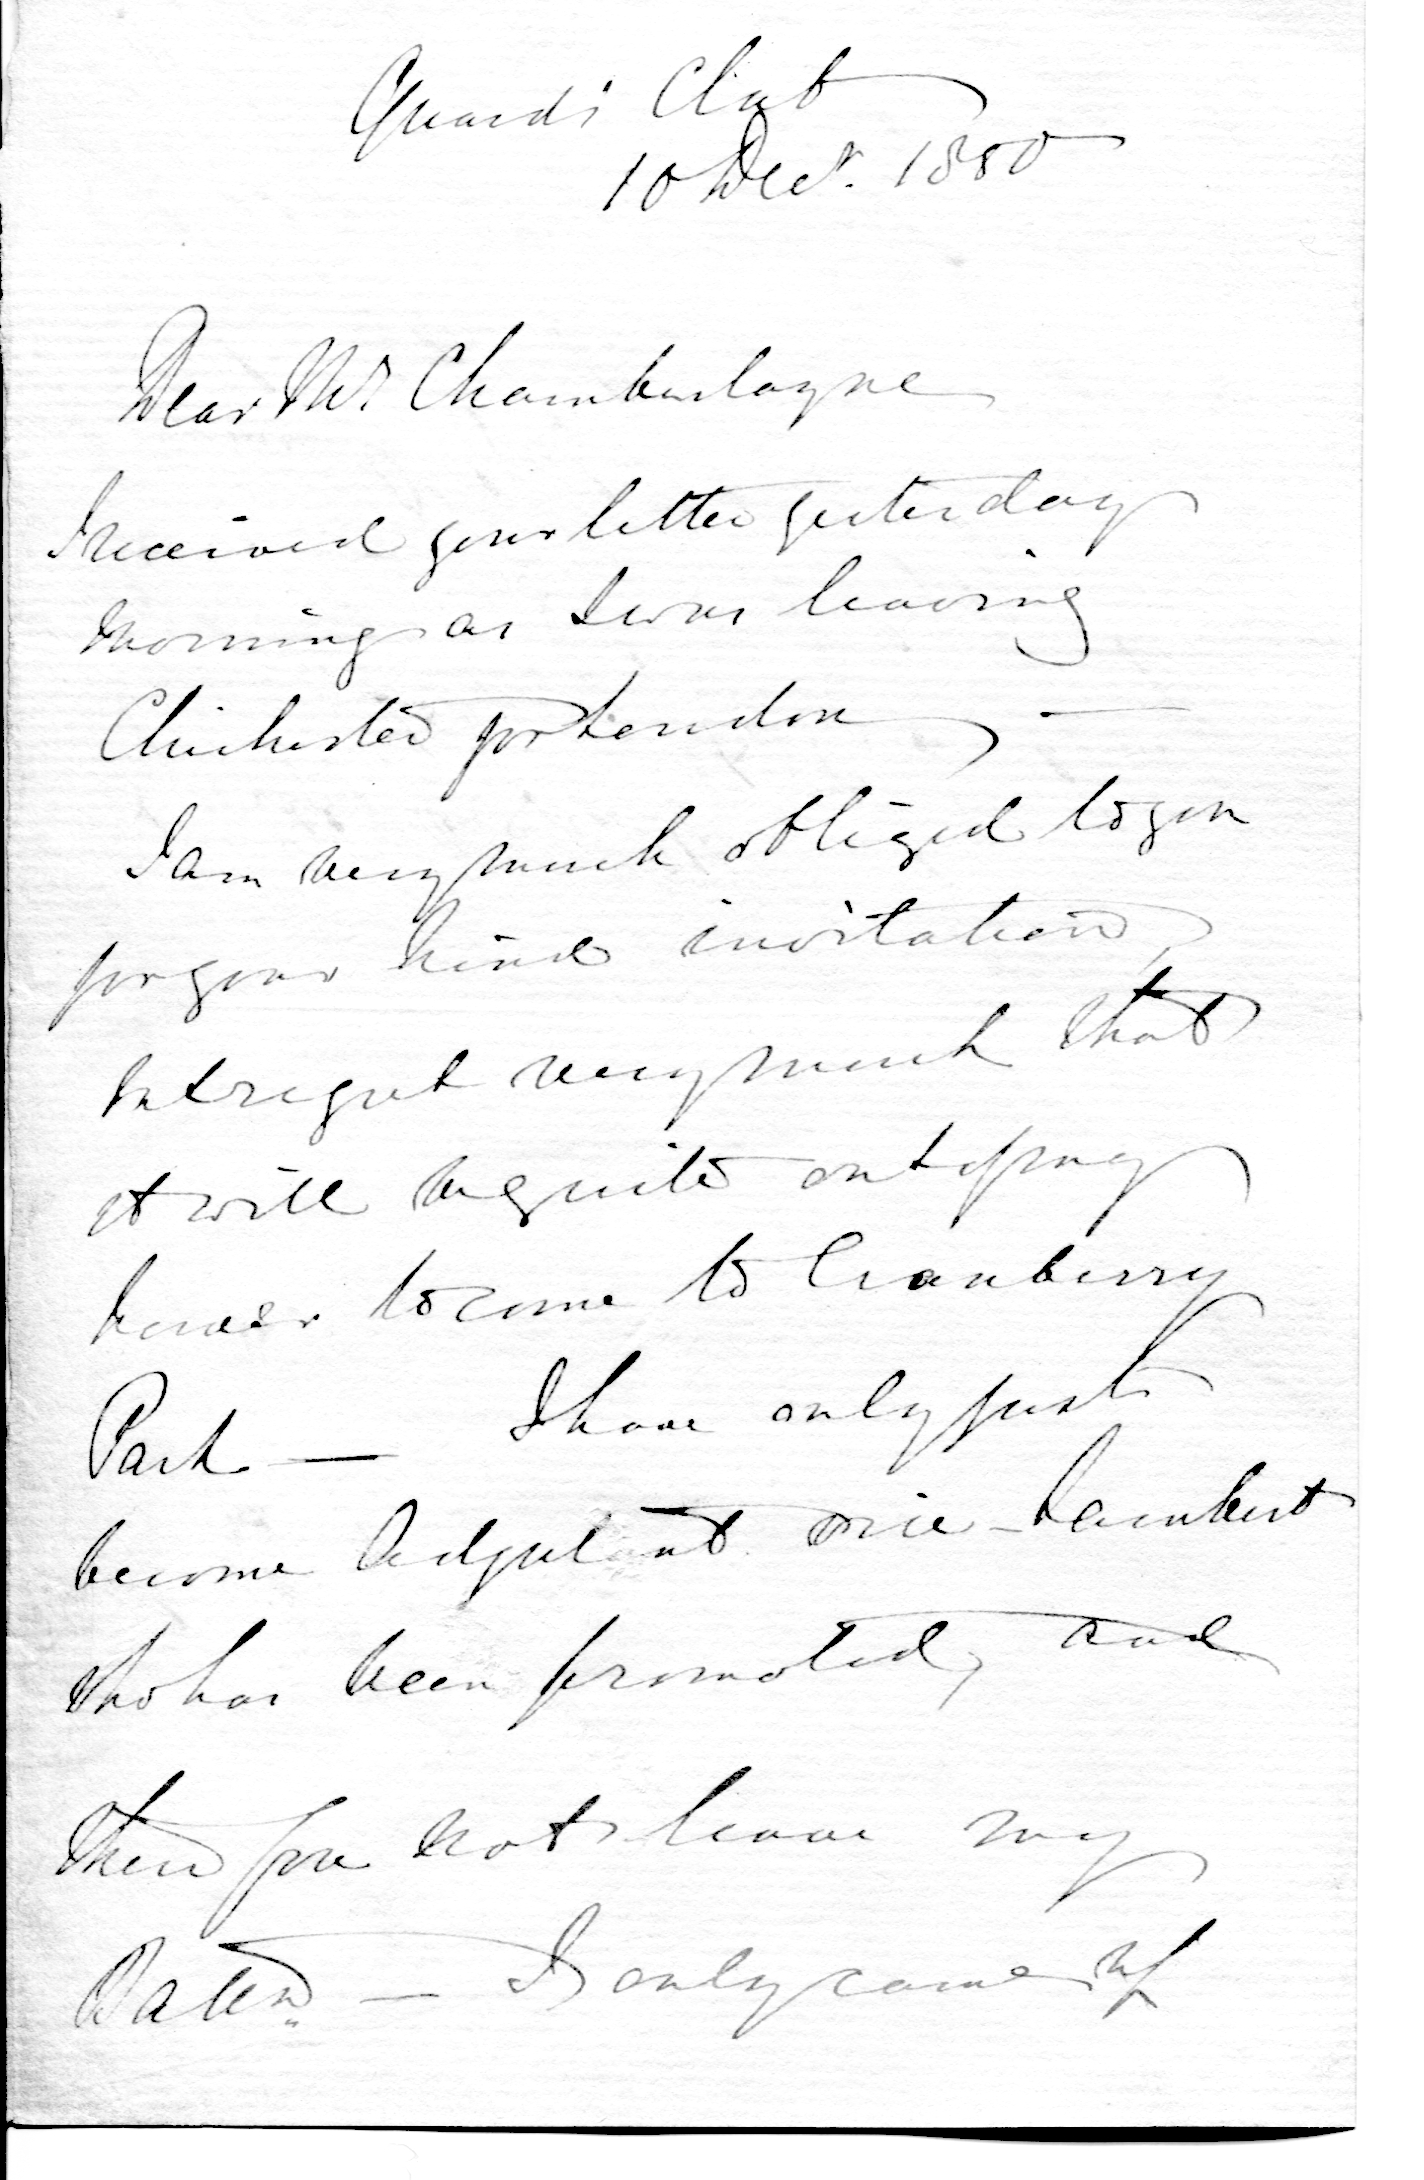 Guards Club
10 Decr. 1880
Dear Mr Chamberlayne
I received your letter yesterday
morning as I was leaving
Chichester for London —
I am very much obliged to you
for your kind invitation,
but regret very much that
it will be quite out of my
power to come to Cranberry
Park — I have only just
become Adjutant vice Lambert
who has been promoted, and
therefore not leave my
Battn. — I only came up